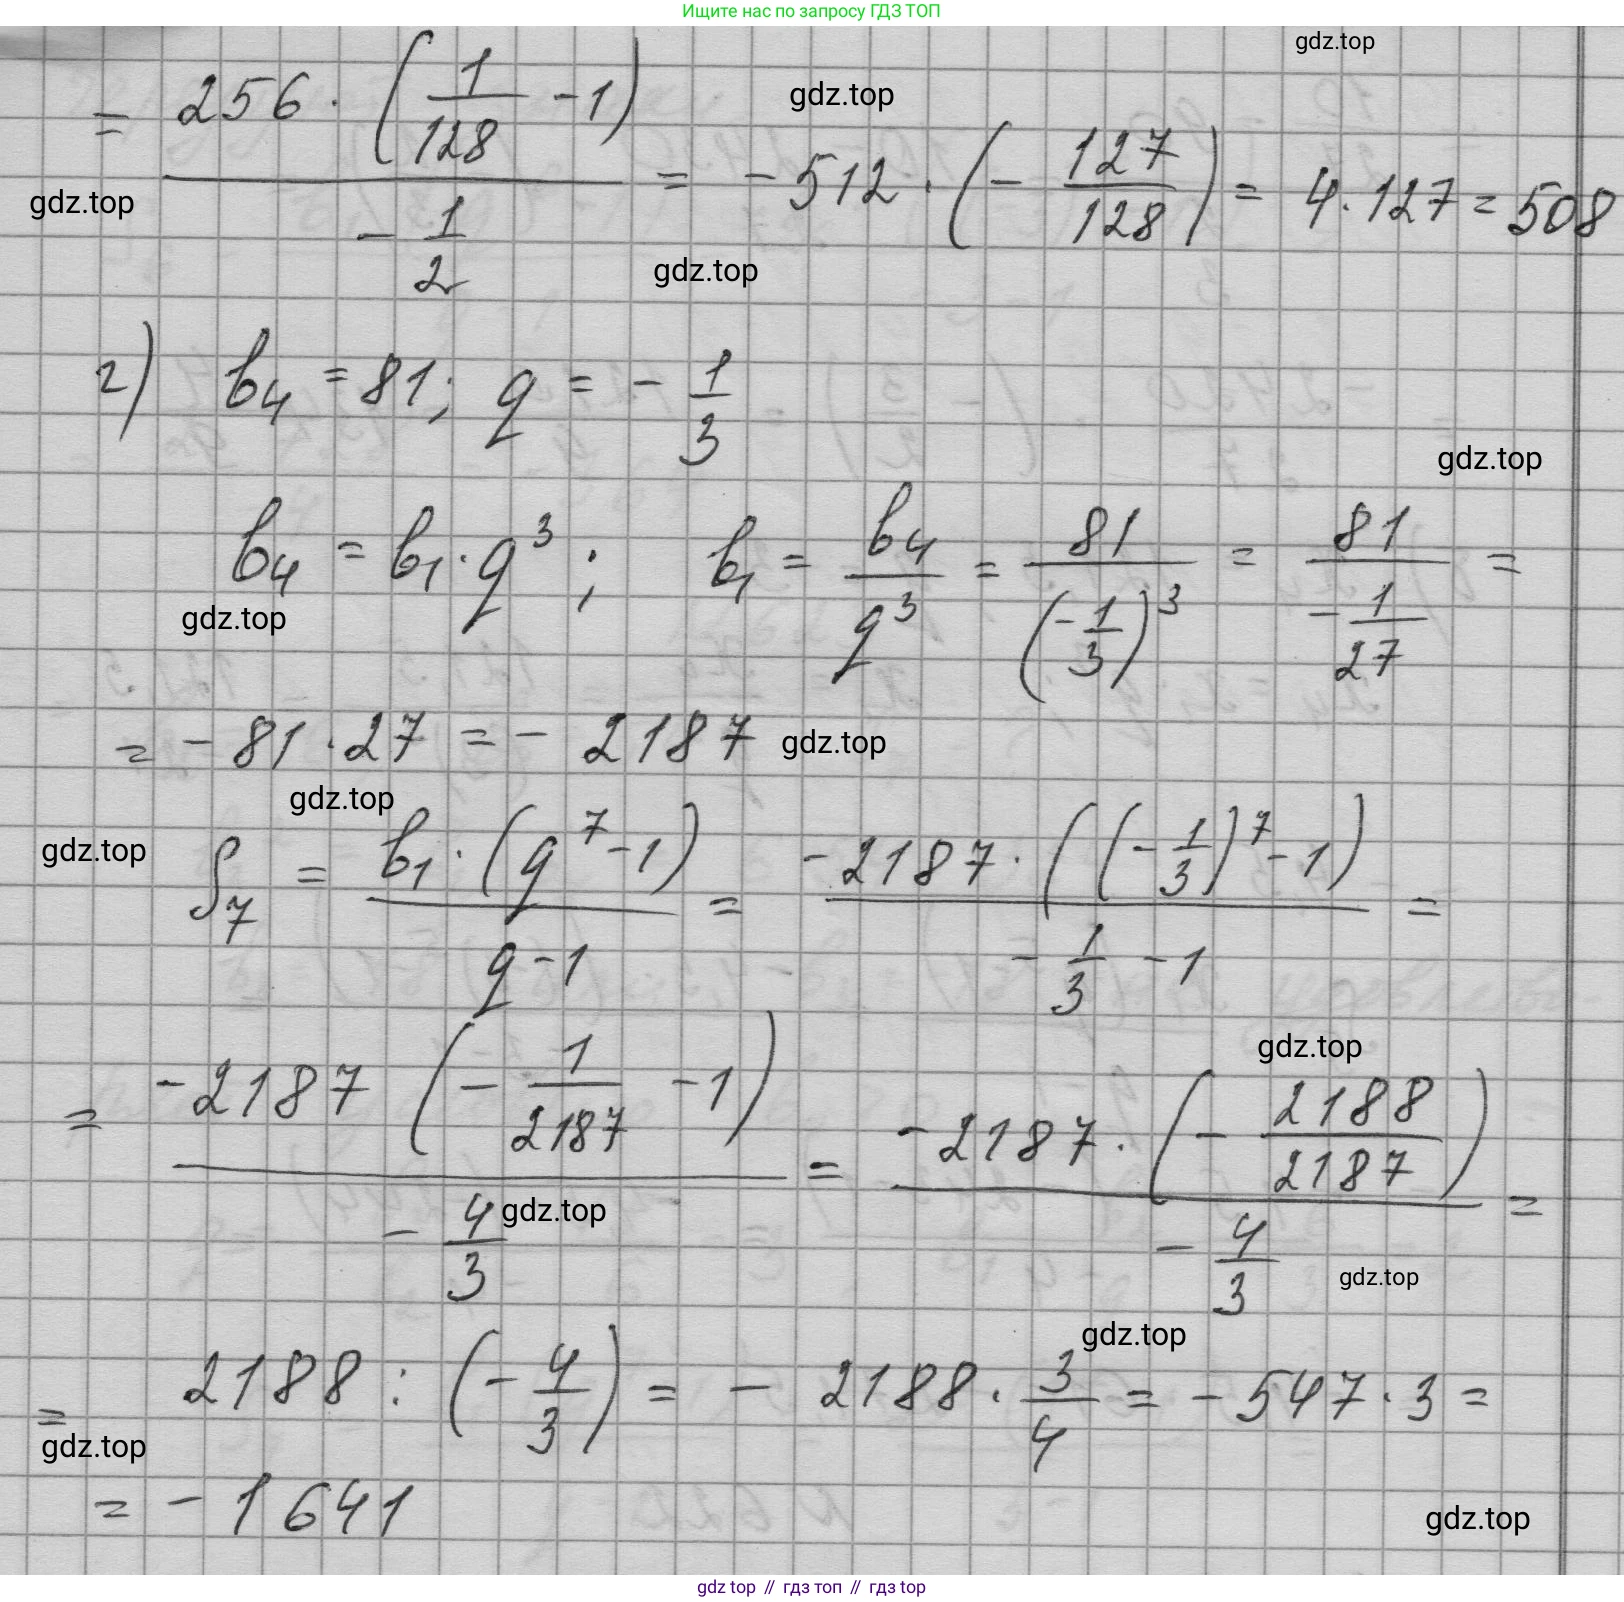 Ищите нас по запросу ГДЗ ТОП
gdz.top
= 256 · (1/128 - 1) / (-1/2) = -512 · (-127/128) = 4 · 127 = 508
gdz.top
gdz.top
gdz.top
г) b₄ = 81; q = -1/3
gdz.top
b₄ = b₁ · q³; b₁ = b₄/q³ = 81/(-1/3)³ = 81/(-1/27) =
gdz.top
= -81 · 27 = -2187
gdz.top
gdz.top
gdz.top
S₇ = b₁ · (q⁷ - 1) / (q - 1) = -2187 · ((-1/3)⁷ - 1) / (-1/3 - 1) =
gdz.top
= -2187 (-1/2187 - 1) / (-4/3) = -2187 · (-2188/2187) / (-4/3) =
gdz.top
gdz.top
gdz.top
= 2188 : (-4/3) = -2188 · 3/4 = -547 · 3 =
gdz.top
= -1641
gdz.top
gdz top // гдз топ // гдз top